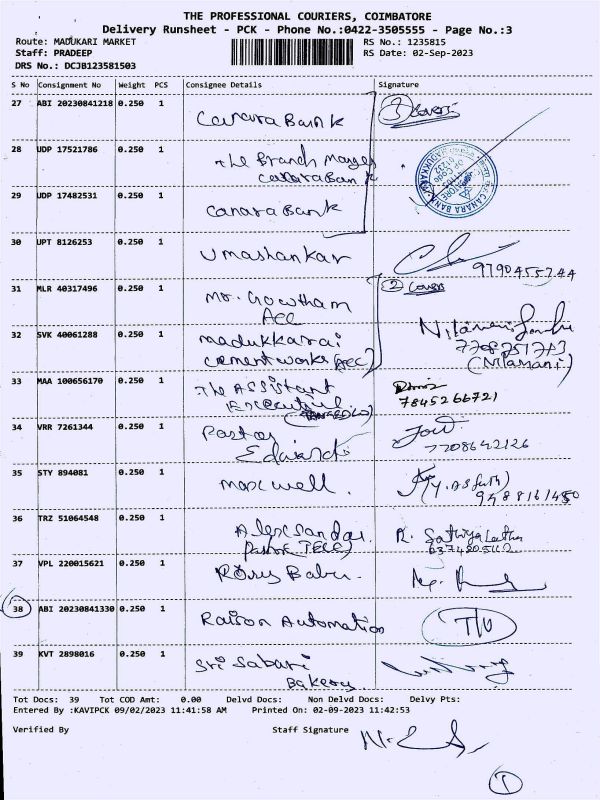 THE PROFESSIONAL COURIERS, COIMBATORE
Delivery Runsheet - PCK - Phone No.:0422-3505555 - Page No.:3
Route: MADUKARI MARKET RS No.: 1235815
Staff: PRADEEP RS Date: 02-Sep-2023
DRS No.: DCJB123581503
S No Consignment No Weight PCS Consignee Details Signature
27 ABI 20230841218 0.250 1 Canara Bank 3 Covers
28 UDP 17521786 0.250 1 The Branch Manger
Canara Bank
29 UDP 17482531 0.250 1 Canara Bank
CANARA BANK
30 UPT 8126253 0.250 1 Umashankar 9790455744
31 MLR 40317496 0.250 1 Mr. Gowtham 2 Covers
Acc
32 SVK 40061288 0.250 1 Madukkarai
Cement works
(Nilamani)
33 MAA 100656170 0.250 1 The Assistant
Executive 7845266721
34 VRR 7261344 0.250 1 Pastor
7708642126
35 STY 894081 0.250 1 Maxwell.
36 TRZ 51064548 0.250 1
37 VPL 220015621 0.250 1 Babu.
38 ABI 20230841330 0.250 1 Raison Automation
39 KVT 2898016 0.250 1 Sri Sabari
Bakery
Tot Docs: 39 Tot COD Amt: 0.00 Delvd Docs: Non Delvd Docs: Delvy Pts:
Entered By :KAVIPCK 09/02/2023 11:41:58 AM Printed On: 02-09-2023 11:42:53
Verified By Staff Signature
1